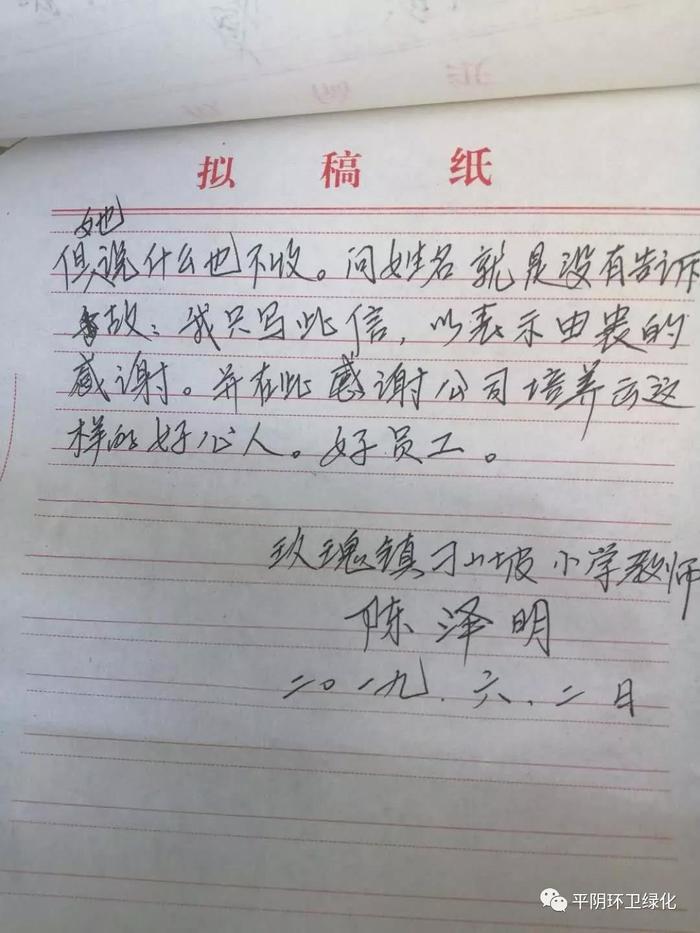 拟稿纸
她
但说什么也不收。问姓名就是没有告诉
故:我只写此信,以表示由衷的
感谢。并在此感谢公司培养云这
样的好心人。好员工。
玫瑰镇刁山坡小学教师
陈泽明
二〇一九.六.二日
平阴环卫绿化